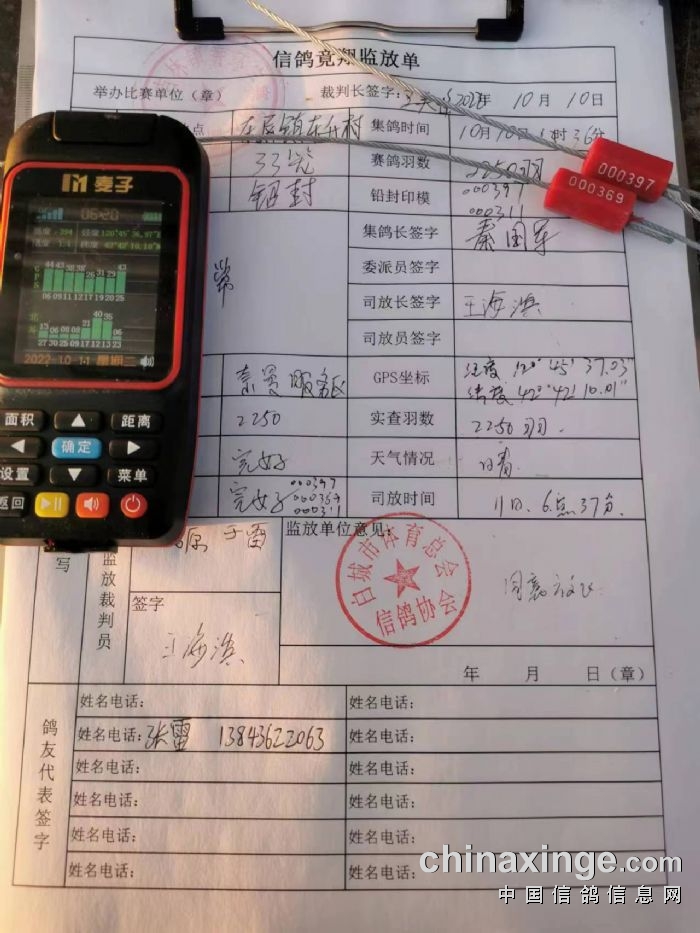 信鸽竞翔监放单
举办比赛单位（章） 裁判长签字： 2022年 10月 10日
点 集鸽时间 10月10日 时36分
赛鸽羽数 2250羽
铅封 铅封印模 000397
000311
集鸽长签字 秦国军
委派员签字
司放长签字 王海滨
司放员签字
奈曼服务区 GPS坐标 经度 120° 45' 37.03"
纬度 42° 42' 10.01"
2250 实查羽数 2250羽.
完好 天气情况 晴
完好 000397
000369
000311 司放时间 11日.6点37分.
写 监放裁判员 于雷 监放单位意见：
签字
王海滨
白城市体育总会
信鸽协会
年 月 日（章）
鸽友代表签字
姓名电话： 姓名电话：
姓名电话：张雷 13843622063 姓名电话：
姓名电话： 姓名电话：
姓名电话： 姓名电话：
姓名电话： 姓名电话：
姓名电话： 姓名电话：
000397
000369
麦子
06:20
2022-10-11 星期二
面积 ▲ 距离
◀ 确定 ▶
设置 ▼ 菜单
返回
chinaxinge.com
中国信鸽信息网